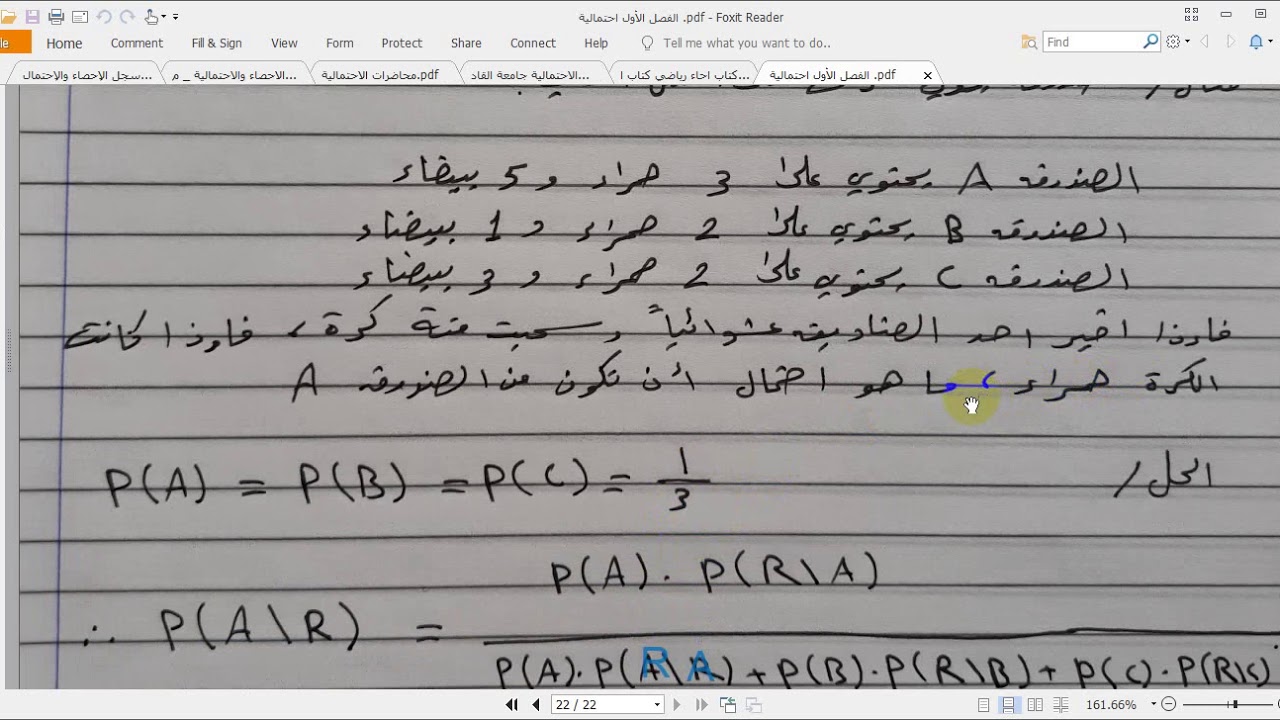 الفصل الأول احتمالية .pdf - Foxit Reader
Home Comment Fill & Sign View Form Protect Share Connect Help Tell me what you want to do.. Find
سجل الإحصاء والاحتمال... الاحصاء والاحتمالية _ م... محاضرات الاحتمالية.pdf الاحتمالية جامعة القاد... كتاب احاء رياضي كتاب ا... الفصل الأول احتمالية .pdf
الصندوق A يحتوي على 3 حمراء و 5 بيضاء
الصندوق B يحتوي على 2 حمراء و 1 بيضاء
الصندوق C يحتوي على 2 حمراء و 3 بيضاء
فاذا اختير احد الصناديق عشوائياً وسحبت منة كرة، فاوذا كانت
الكرة حمراء، ما هو احتمال أن تكون من الصندوق A
الحل /
P(A) = P(B) = P(C) = 1/3
P(A) . P(R\A)
∴ P(A\R) =
P(A). P(R\A) + P(B). P(R\B) + P(C). P(R\C)
22 / 22 161.66%